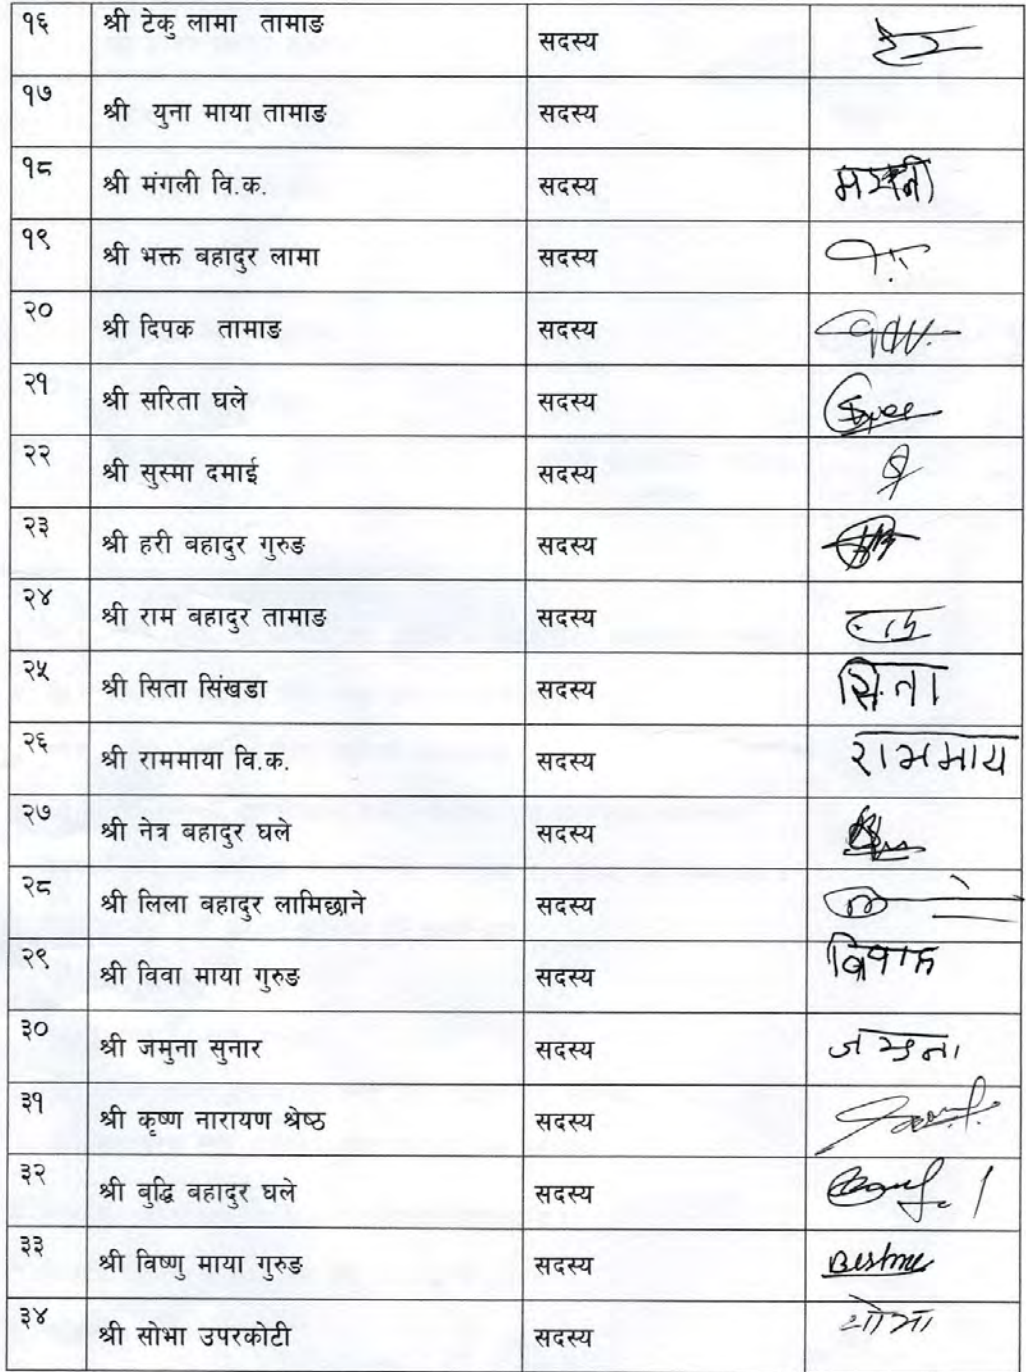 १६ श्री टेकु लामा तामाङ सदस्य
१७ श्री युना माया तामाङ सदस्य
१८ श्री मंगली वि.क. सदस्य
१९ श्री भक्त बहादुर लामा सदस्य
२० श्री दिपक तामाङ सदस्य
२१ श्री सरिता घले सदस्य
२२ श्री सुस्मा दमाई सदस्य
२३ श्री हरी बहादुर गुरुङ सदस्य
२४ श्री राम बहादुर तामाङ सदस्य
२५ श्री सिता सिंखडा सदस्य सिता
२६ श्री राममाया वि.क. सदस्य राममाय
२७ श्री नेत्र बहादुर घले सदस्य
२८ श्री लिला बहादुर लामिछाने सदस्य
२९ श्री विवा माया गुरुङ सदस्य
३० श्री जमुना सुनार सदस्य जमुना
३१ श्री कृष्ण नारायण श्रेष्ठ सदस्य
३२ श्री बुद्धि बहादुर घले सदस्य
३३ श्री विष्णु माया गुरुङ सदस्य
३४ श्री सोभा उपरकोटी सदस्य शोभा